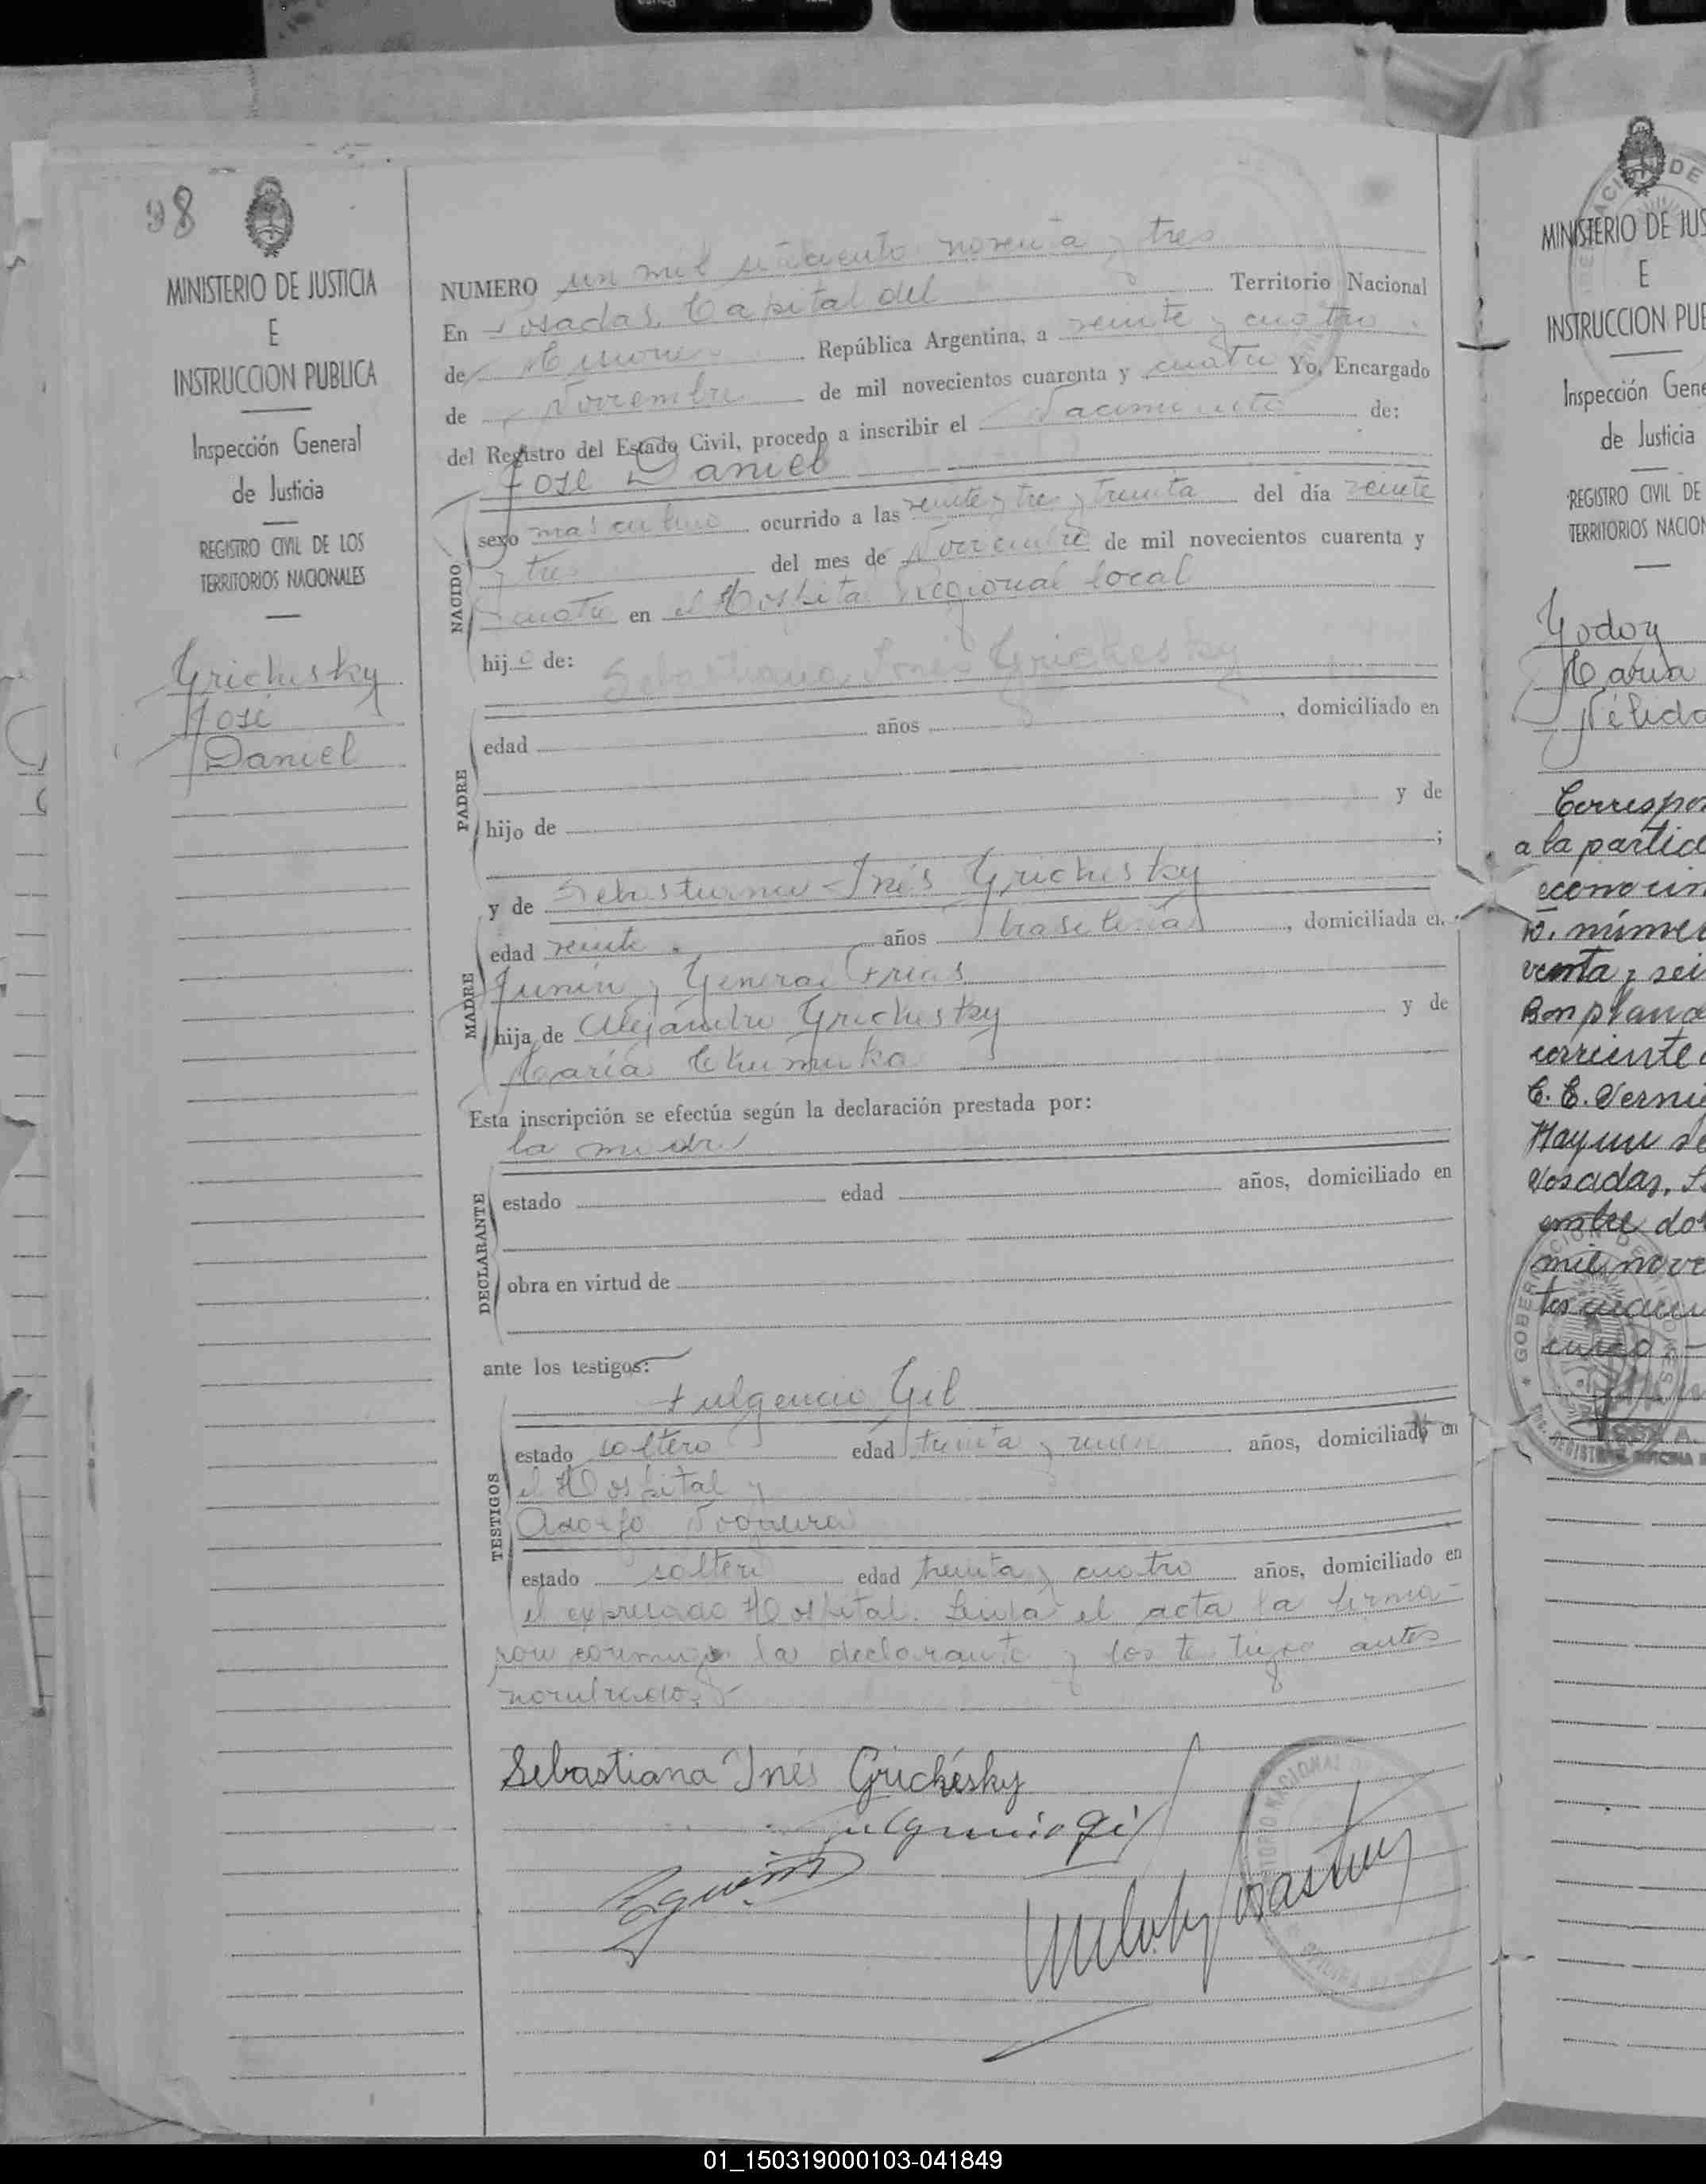 98
MINISTERIO DE JUSTICIA
E
INSTRUCCION PUBLICA
Inspección General
de Justicia
REGISTRO CIVIL DE LOS
TERRITORIOS NACIONALES
Grichesky
José
Daniel
NUMERO un mil setecientos noventa y tres
En Posadas, Capital del Territorio Nacional
de Misiones República Argentina, a veinte y cuatro
de Noviembre de mil novecientos cuarenta y cuatro Yo, Encargado
del Registro del Estado Civil, procedo a inscribir el Nacimiento de:
José Daniel
NACIDO
sexo masculino ocurrido a las veinte y tres y treinta del día veinte
y tres del mes de Noviembre de mil novecientos cuarenta y
cuatro en el Hospital Regional local
hijo de: Sebastiana Inés Grichesky
PADRE
edad años , domiciliado en
hijo de y de
;
MADRE
y de Sebastiana Inés Grichesky
edad veinte años brasileña, domiciliada en
Junín y General Frias
hija de Alejandro Grichesky y de
María
Esta inscripción se efectúa según la declaración prestada por:
la madre
DECLARANTE
estado edad años, domiciliado en
obra en virtud de
ante los testigos:
TESTIGOS
Fulgencio Gil
estado soltero edad treinta y años, domiciliado en
el Hospital y
Adolfo
estado soltero edad treinta y cuatro años, domiciliado en
el expresado Hospital. Leida el acta la firma-
ron conmigo la declarante y los testigos antes
nombrados.
Sebastiana Inés Grichésky
Fulgencio Gil
MINISTERIO DE JUS
E
INSTRUCCION PUB
Inspección Gene
de Justicia
REGISTRO CIVIL DE
TERRITORIOS NACION
Godoy
María
Nélida
Correspon
a la partida
venta y sei
Bonpland
corriente
Posadas,
mil nove
GOBERNACION DE MISIONES
01_150319000103-041849